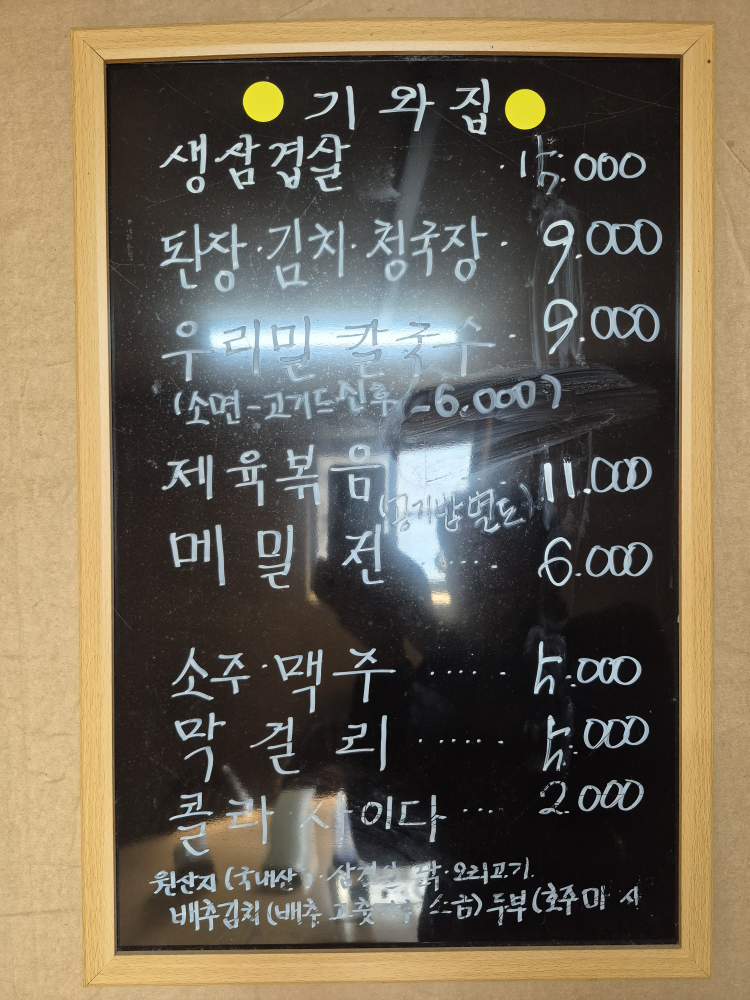 기와집
생삼겹살 · 15.000
된장·김치·청국장 · 9.000
우리밀 칼국수 · 9.000
(소면-고기드신후-6.000)
제육볶음 ·· 11.000
(공기밥별도)
메밀전 ···· 6.000
소주·맥주 ····· 5.000
막걸리 ······ 5.000
콜라 사이다 ··· 2.000
원산지(국내산)·삼겹살 닭·오리고기
배추김치(배추 고춧 소금) 두부(호주 미